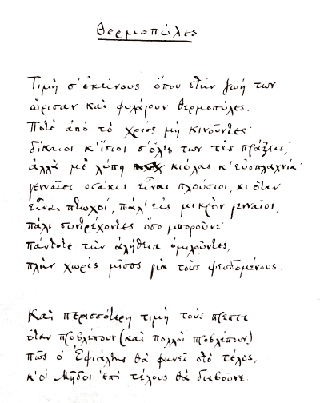 Θερμοπύλες
Τιμή σ' εκείνους όπου στην ζωή των
ώρισαν και φυλάγουν Θερμοπύλες.
Ποτέ από το χρέος μη κινούντες·
δίκαιοι κ' ίσιοι σ' όλες των τες πράξεις,
αλλά με λύπη κιόλας κ' ευσπλαχνία·
γενναίοι οσάκις είναι πλούσιοι, κι όταν
είναι πτωχοί, πάλ' εις μικρόν γενναίοι,
πάλι συντρέχοντες όσο μπορούνε·
πάντοτε την αλήθεια ομιλούντες,
πλην χωρίς μίσος για τους ψευδομένους.
Και περισσότερη τιμή τούς πρέπει
όταν προβλέπουν (και πολλοί προβλέπουν)
πως ο Εφιάλτης θα φανεί στο τέλος,
κ' οι Μήδοι επί τέλους θα διαβούνε.